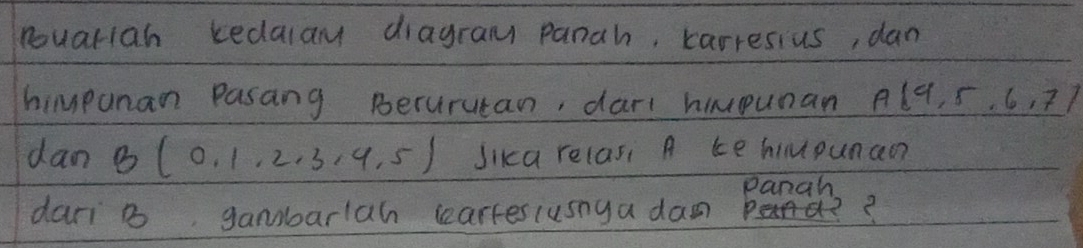 Buatlah kedalam diagram Panah, kartesius, dan
himpunan Pasang Berurutan, dari himpunan A(4,5,6,7)
dan B (0,1,2,3,4,5) Jika relasi A ke himpunan
dari B gambarlah kartesiusnya dan Panah ?